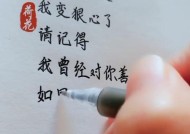 荷花
我变狠心了
请记得
我曾经对你善
如